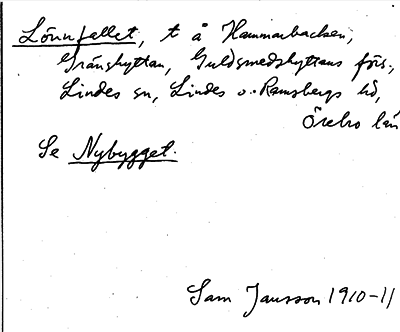 Lönnfallet, t å Hammarbacken,
Gränshyttan, Guldsmedshyttans förs.,
Lindes sn, Lindes o. Ramsbergs hd,
Örebro län
Se Nybygget.
Sam Jansson 1910-11